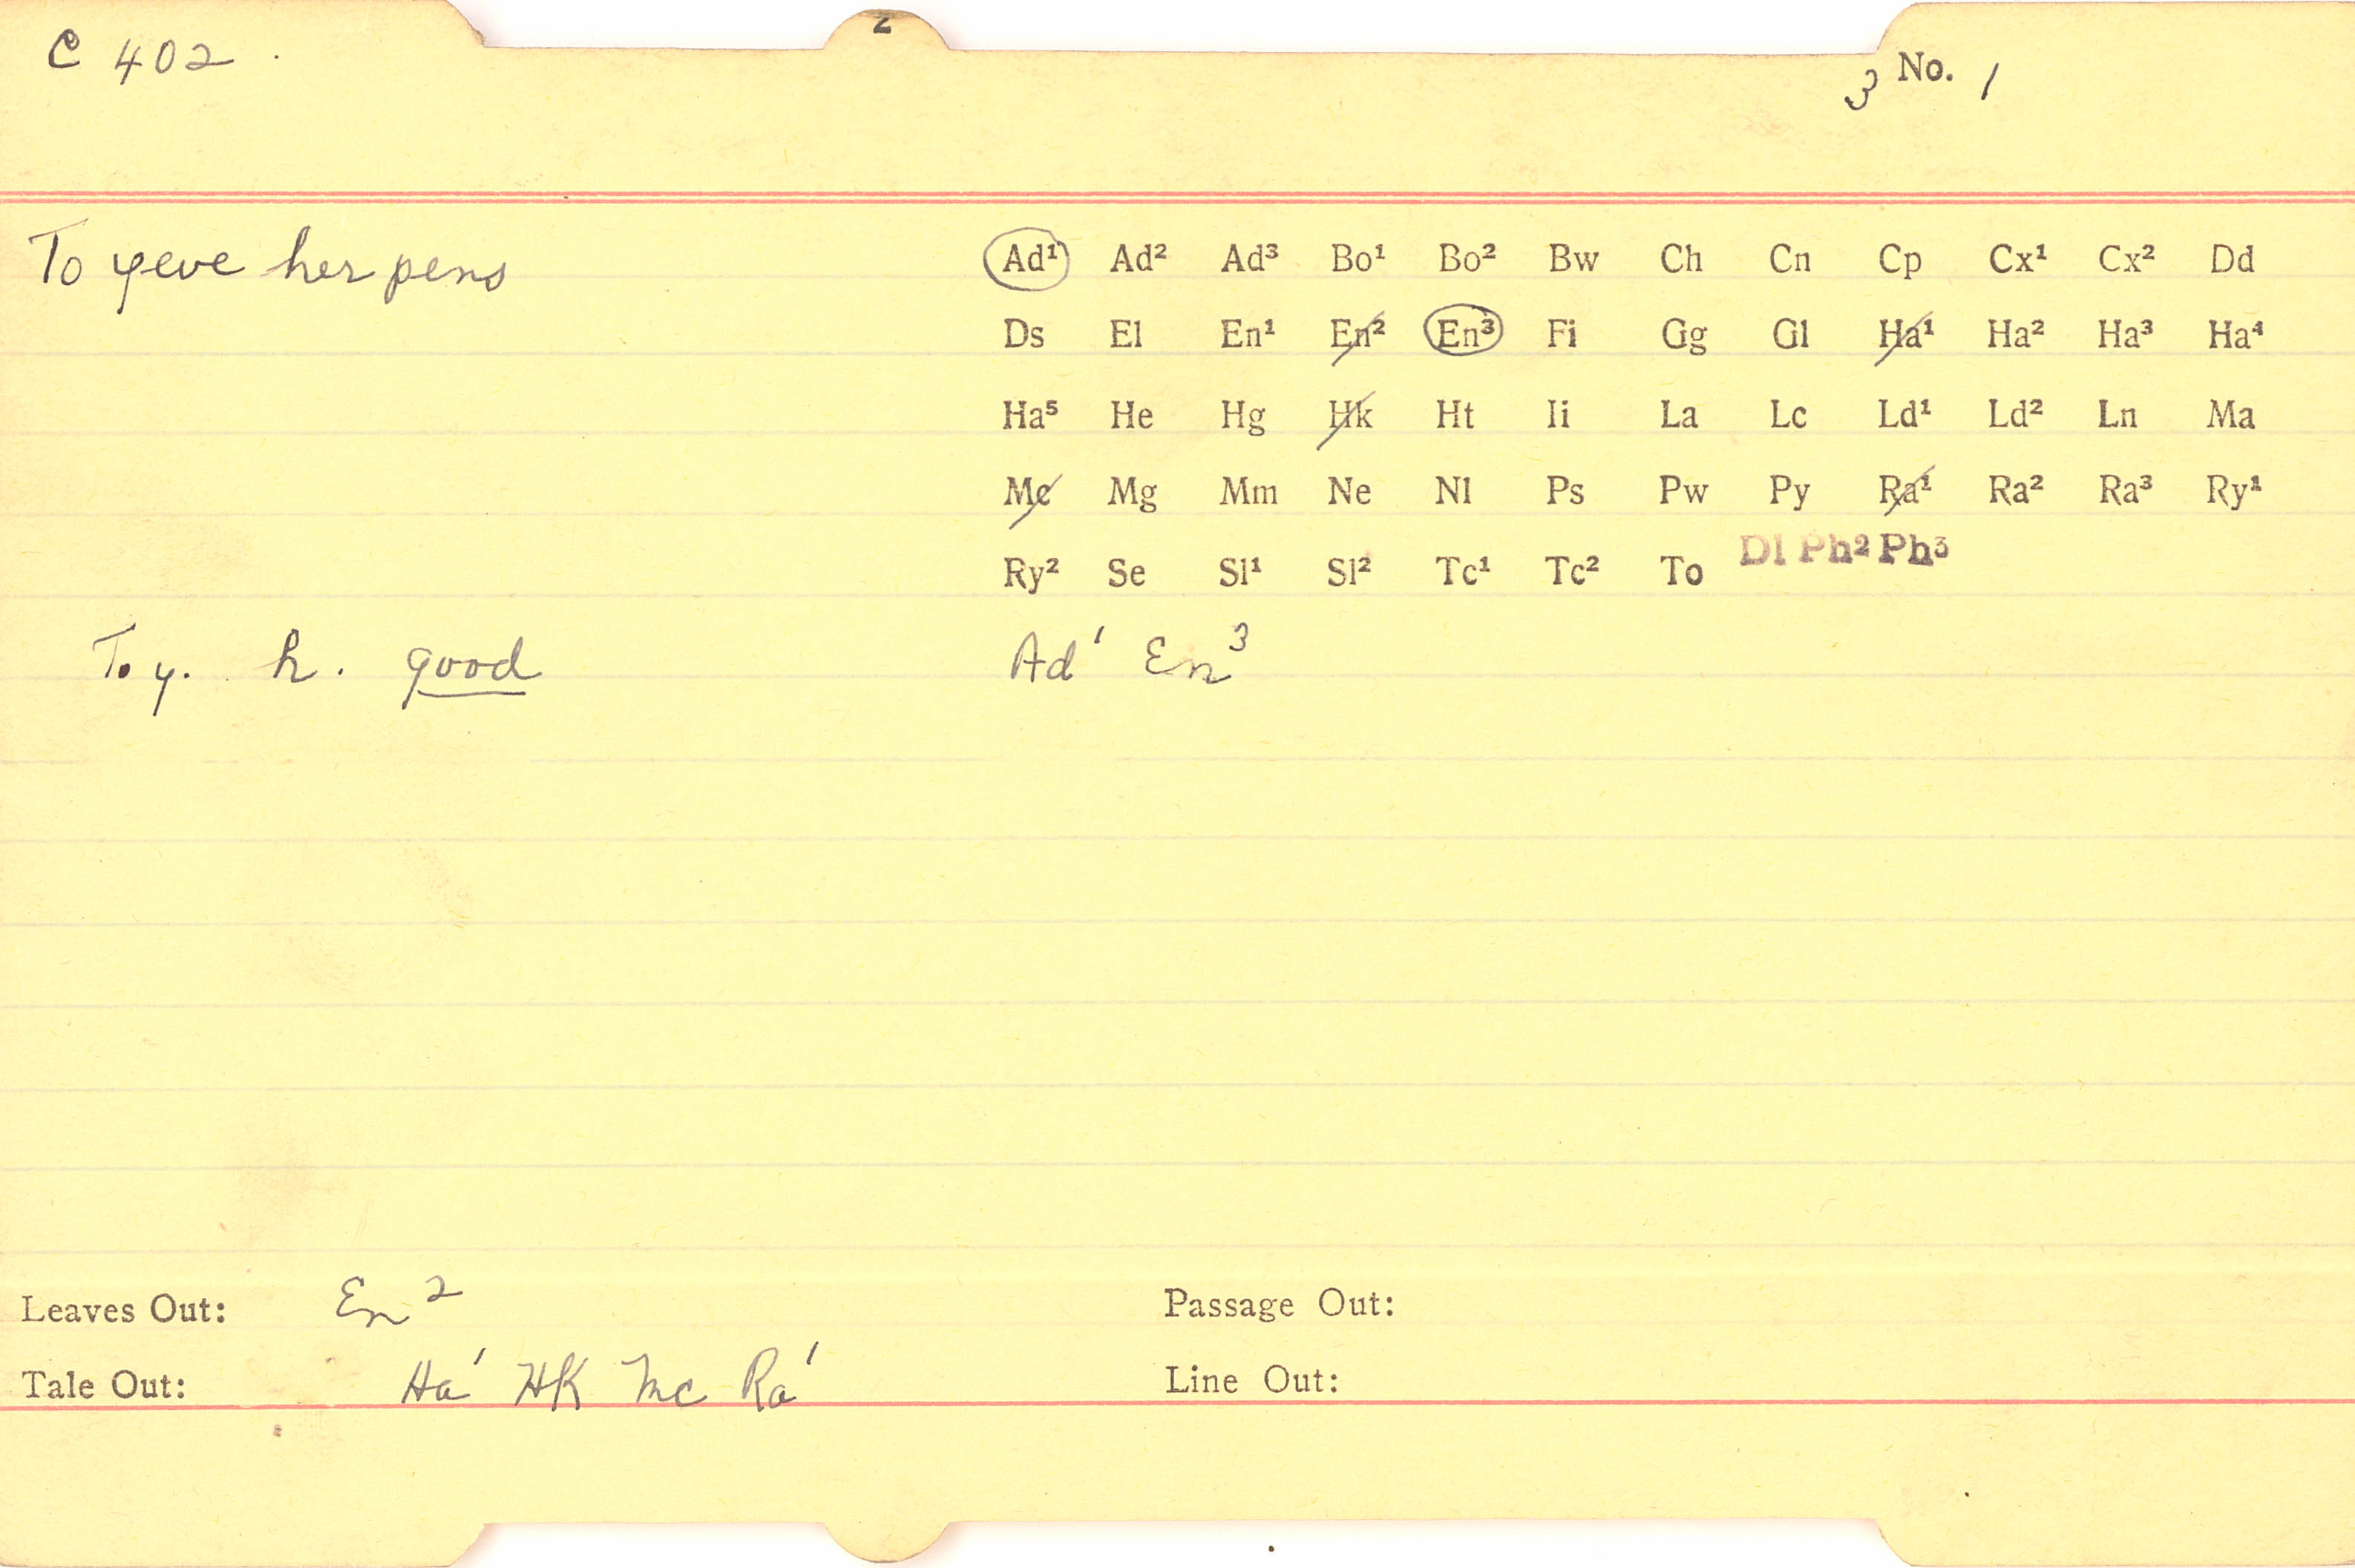 2
C 402 .
3 No. 1
To yeve her pens
Ad¹ Ad² Ad³ Bo¹ Bo² Bw Ch Cn Cp Cx¹ Cx² Dd
Ds El En¹ En² En³ Fi Gg Gl Ha¹ Ha² Ha³ Ha⁴
Ha⁵ He Hg Hk Ht Ii La Lc Ld¹ Ld² Ln Ma
Mc Mg Mm Ne Nl Ps Pw Py Ra¹ Ra² Ra³ Ry¹
Ry² Se Sl¹ Sl² Tc¹ Tc² To Dl Ph² Ph³
To y. h. good Ad¹ En³
Leaves Out: En² Passage Out:
Tale Out: Ha¹ HK Mc Ra¹ Line Out: